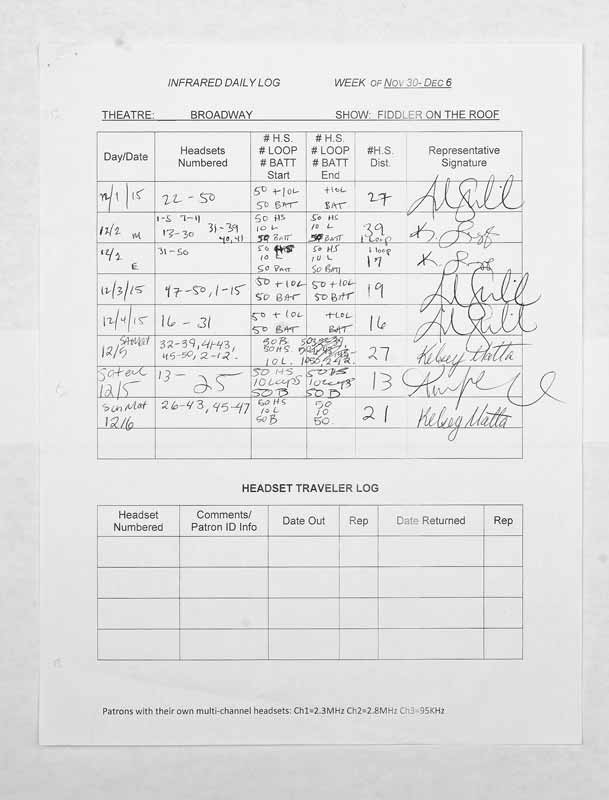 INFRARED DAILY LOG WEEK OF NOV 30- DEC 6
THEATRE: BROADWAY SHOW: FIDDLER ON THE ROOF
Day/Date
Headsets
Numbered
# H.S.
# LOOP
# BATT
Start
# H.S.
# LOOP
# BATT
End
#H.S.
Dist.
Representative
Signature
12/1/15
22-50
50 + 10L
50 BAT
+10L
BAT
27
12/2 M
1-5 7-11
13-30 31-39
40,41
50 HS
10 L
50 BATT
50 HS
10 L
50 BATT
39
1 loop
K.
12/2
E
31-50
50 HS
10 L
50 BATT
50 HS
10 L
50 BATT
1 loop
17
K.
12/3/15
47-50, 1-15
50 + 10L
50 BAT
50 + 10L
50 BAT
19
12/4/15
16 - 31
50 + 10L
50 BAT
+10L
BAT
16
12/5
32-39, 41-43,
45-50, 2-12.
50B
50HS.
10 L.
27
Kelsey Matta
Sat eve
12/5
13 - 25
50 HS
10 Loops
50 B
50 HS
10 Loops
50 B
13
Sun Mat
12/6
26-43, 45-47
50 HS
10 L
50 B
50
10
50.
21
Kelsey Matta
HEADSET TRAVELER LOG
Headset
Numbered
Comments/
Patron ID Info
Date Out
Rep
Date Returned
Rep
Patrons with their own multi-channel headsets: Ch1=2.3MHz Ch2=2.8MHz Ch3=95KHz